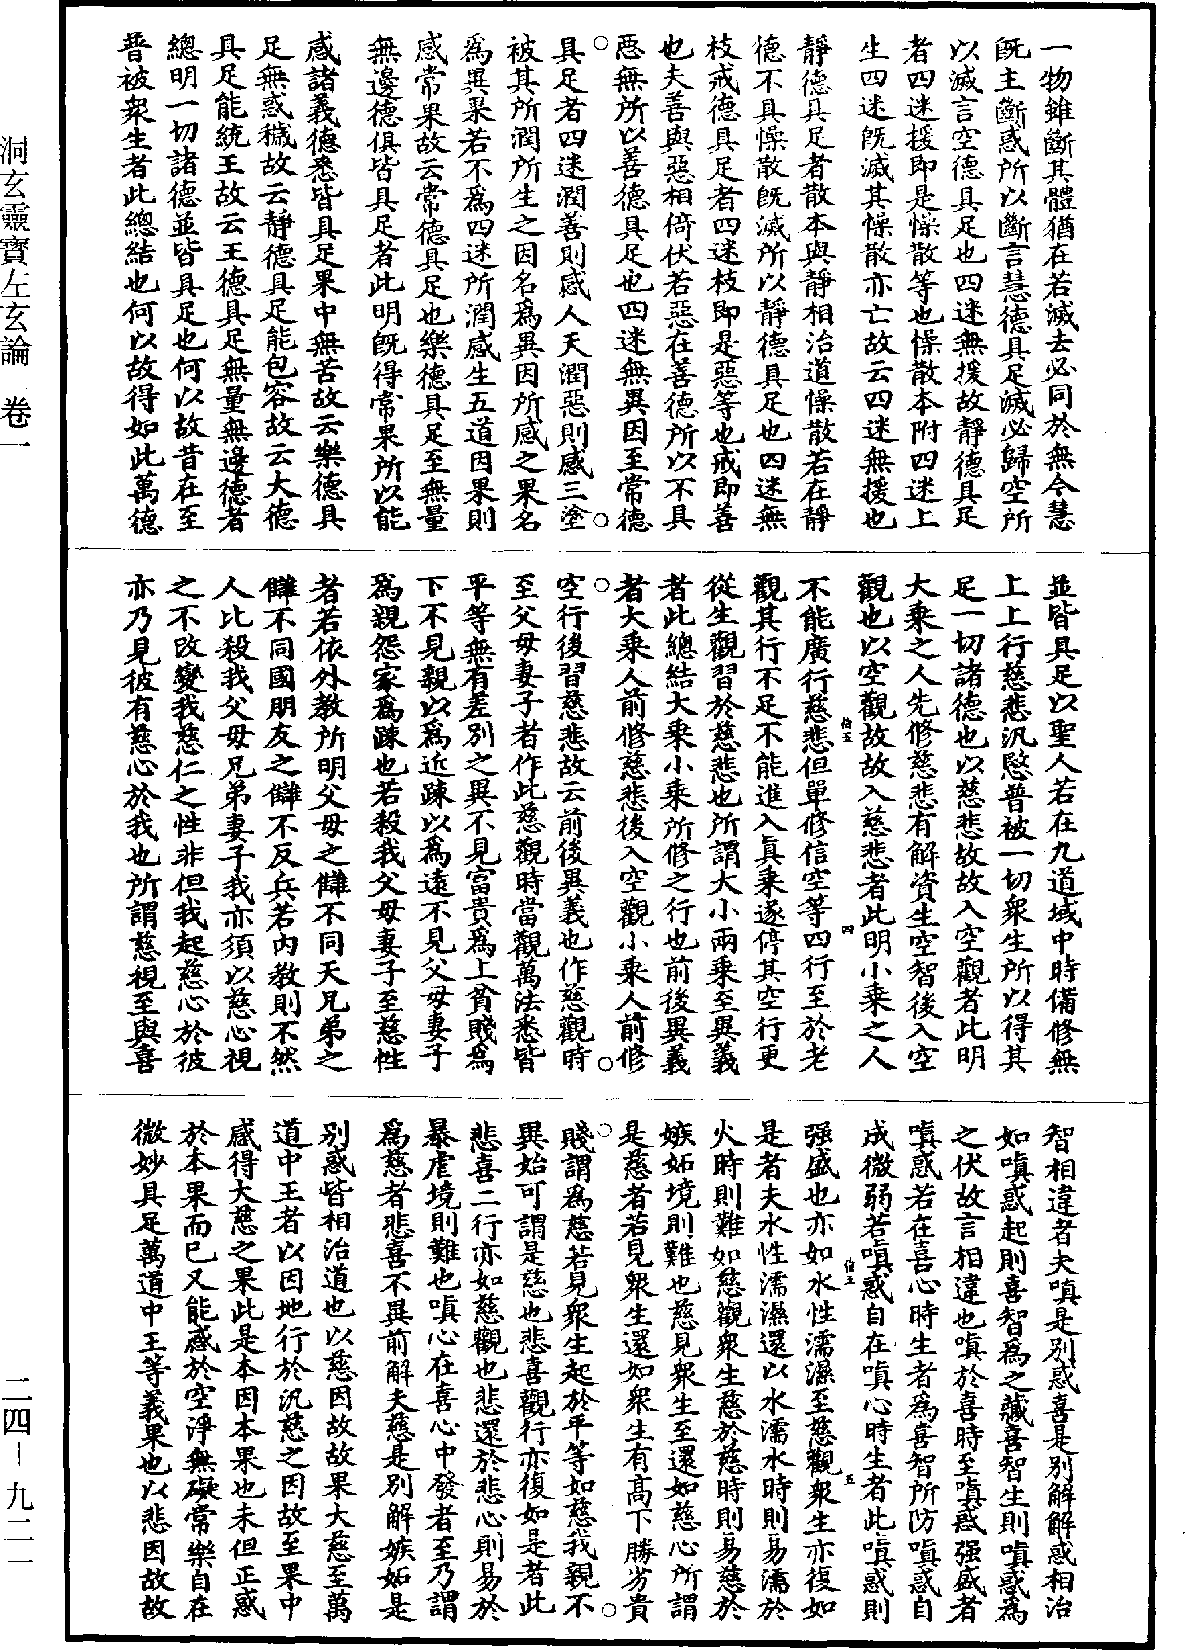 一物雖斷其體猶在若滅去必同於無今慧
既主斷惑所以斷言慧德具足滅必歸空所
以滅言空德具足也四迷無援故靜德具足
者四迷援即是懆散等也懆散本附四迷上
生四迷既滅其懆散亦亡故云四迷無援也
靜德具足者散本與靜相治道懆散若在靜
德不具懆散既滅所以靜德具足也四迷無
枝戒德具足者四迷枝即是惡等也戒即善
也夫善與惡相倚伏若惡在善德所以不具
惡無所以善德具足也四迷無異因至常德
具足者四迷潤善則感人天潤惡則感三塗
被其所潤所生之因名爲異因所感之果名
爲異果若不爲四迷所潤感生五道因果則
感常果故云常德具足也樂德具足至無量
無邊德俱皆具足者此明既得常果所以能
感諸義德悉皆具足果中無苦故云樂德具
足無惑穢故云靜德具足能包容故云大德
具足能統王故云王德具足無量無邊德者
總明一切諸德並皆具足也何以故昔在至
普被衆生者此總結也何以故得如此萬德
並皆具足以聖人若在九道域中時備修無
上上行慈悲汎愍普被一切衆生所以得其
足一切諸德也以慈悲故故入空觀者此明
大乘之人先修慈悲有解資生空智後入空
觀也以空觀故故入慈悲者此明小乘之人
不能廣行慈悲但單修信空等四行至於老
觀其行不足不能進入真乘遂停其空行更
從生觀習於慈悲也所謂大小兩乘至異義
者此總結大乘小乘所修之行也前後異義
者大乘人前修慈悲後入空觀小乘人前修
空行後習慈悲故云前後異義也作慈觀時
至父母妻子者作此慈觀時當觀萬法悉皆
平等無有差別之異不見富貴爲上貧賤爲
下不見親以爲近踈以爲遠不見父母妻子
爲親怨家爲踈也若殺我父母妻子至慈性
者若依外教所明父母之讎不同天兄弟之
讎不同國朋友之讎不反兵若內教則不然
人比殺我父母兄弟妻子我亦須以慈心視
之不改變我慈仁之性非但我起慈心於彼
亦乃見彼有慈心於我也所謂慈視至與喜
智相違者夫嗔是別惑喜是別解解惑相治
如嗔惑起則喜智爲之藏喜智生則嗔惑爲
之伏故言相違也嗔於喜時至嗔惑强盛者
嗔惑若在喜心時生者爲喜智所防嗔惑自
成微弱若嗔惑自在嗔心時生者此嗔惑則
强盛也亦如水性濡濕至慈觀衆生亦復如
是者夫水性濡濕還以水濡水時則易濡於
火時則難如慈觀衆生慈於慈時則易慈於
嫉妬境則難也慈見衆生至還如慈心所謂
是慈者若見衆生還如衆生有高下勝劣貴
賤謂爲慈若見衆生起於平等如慈我親不
異始可謂是慈也悲喜觀行亦復如是者此
悲喜二行亦如慈觀也悲還於悲心則易於
暴虐境則難也嗔心在喜心中發者至乃謂
爲慈者悲喜不異前解夫慈是別解嫉妬是
別惑皆相治道也以慈因故故果大慈至萬
道中王者以因地行於汎慈之因故至果中
感得大慈之果此是本因本果也未但正感
於本果而已又能感於空淨無礙常樂自在
微妙具足萬道中王等義果也以悲因故故
伯五
四
伯五
五
洞玄靈寶左玄論　卷一
二四－九二一